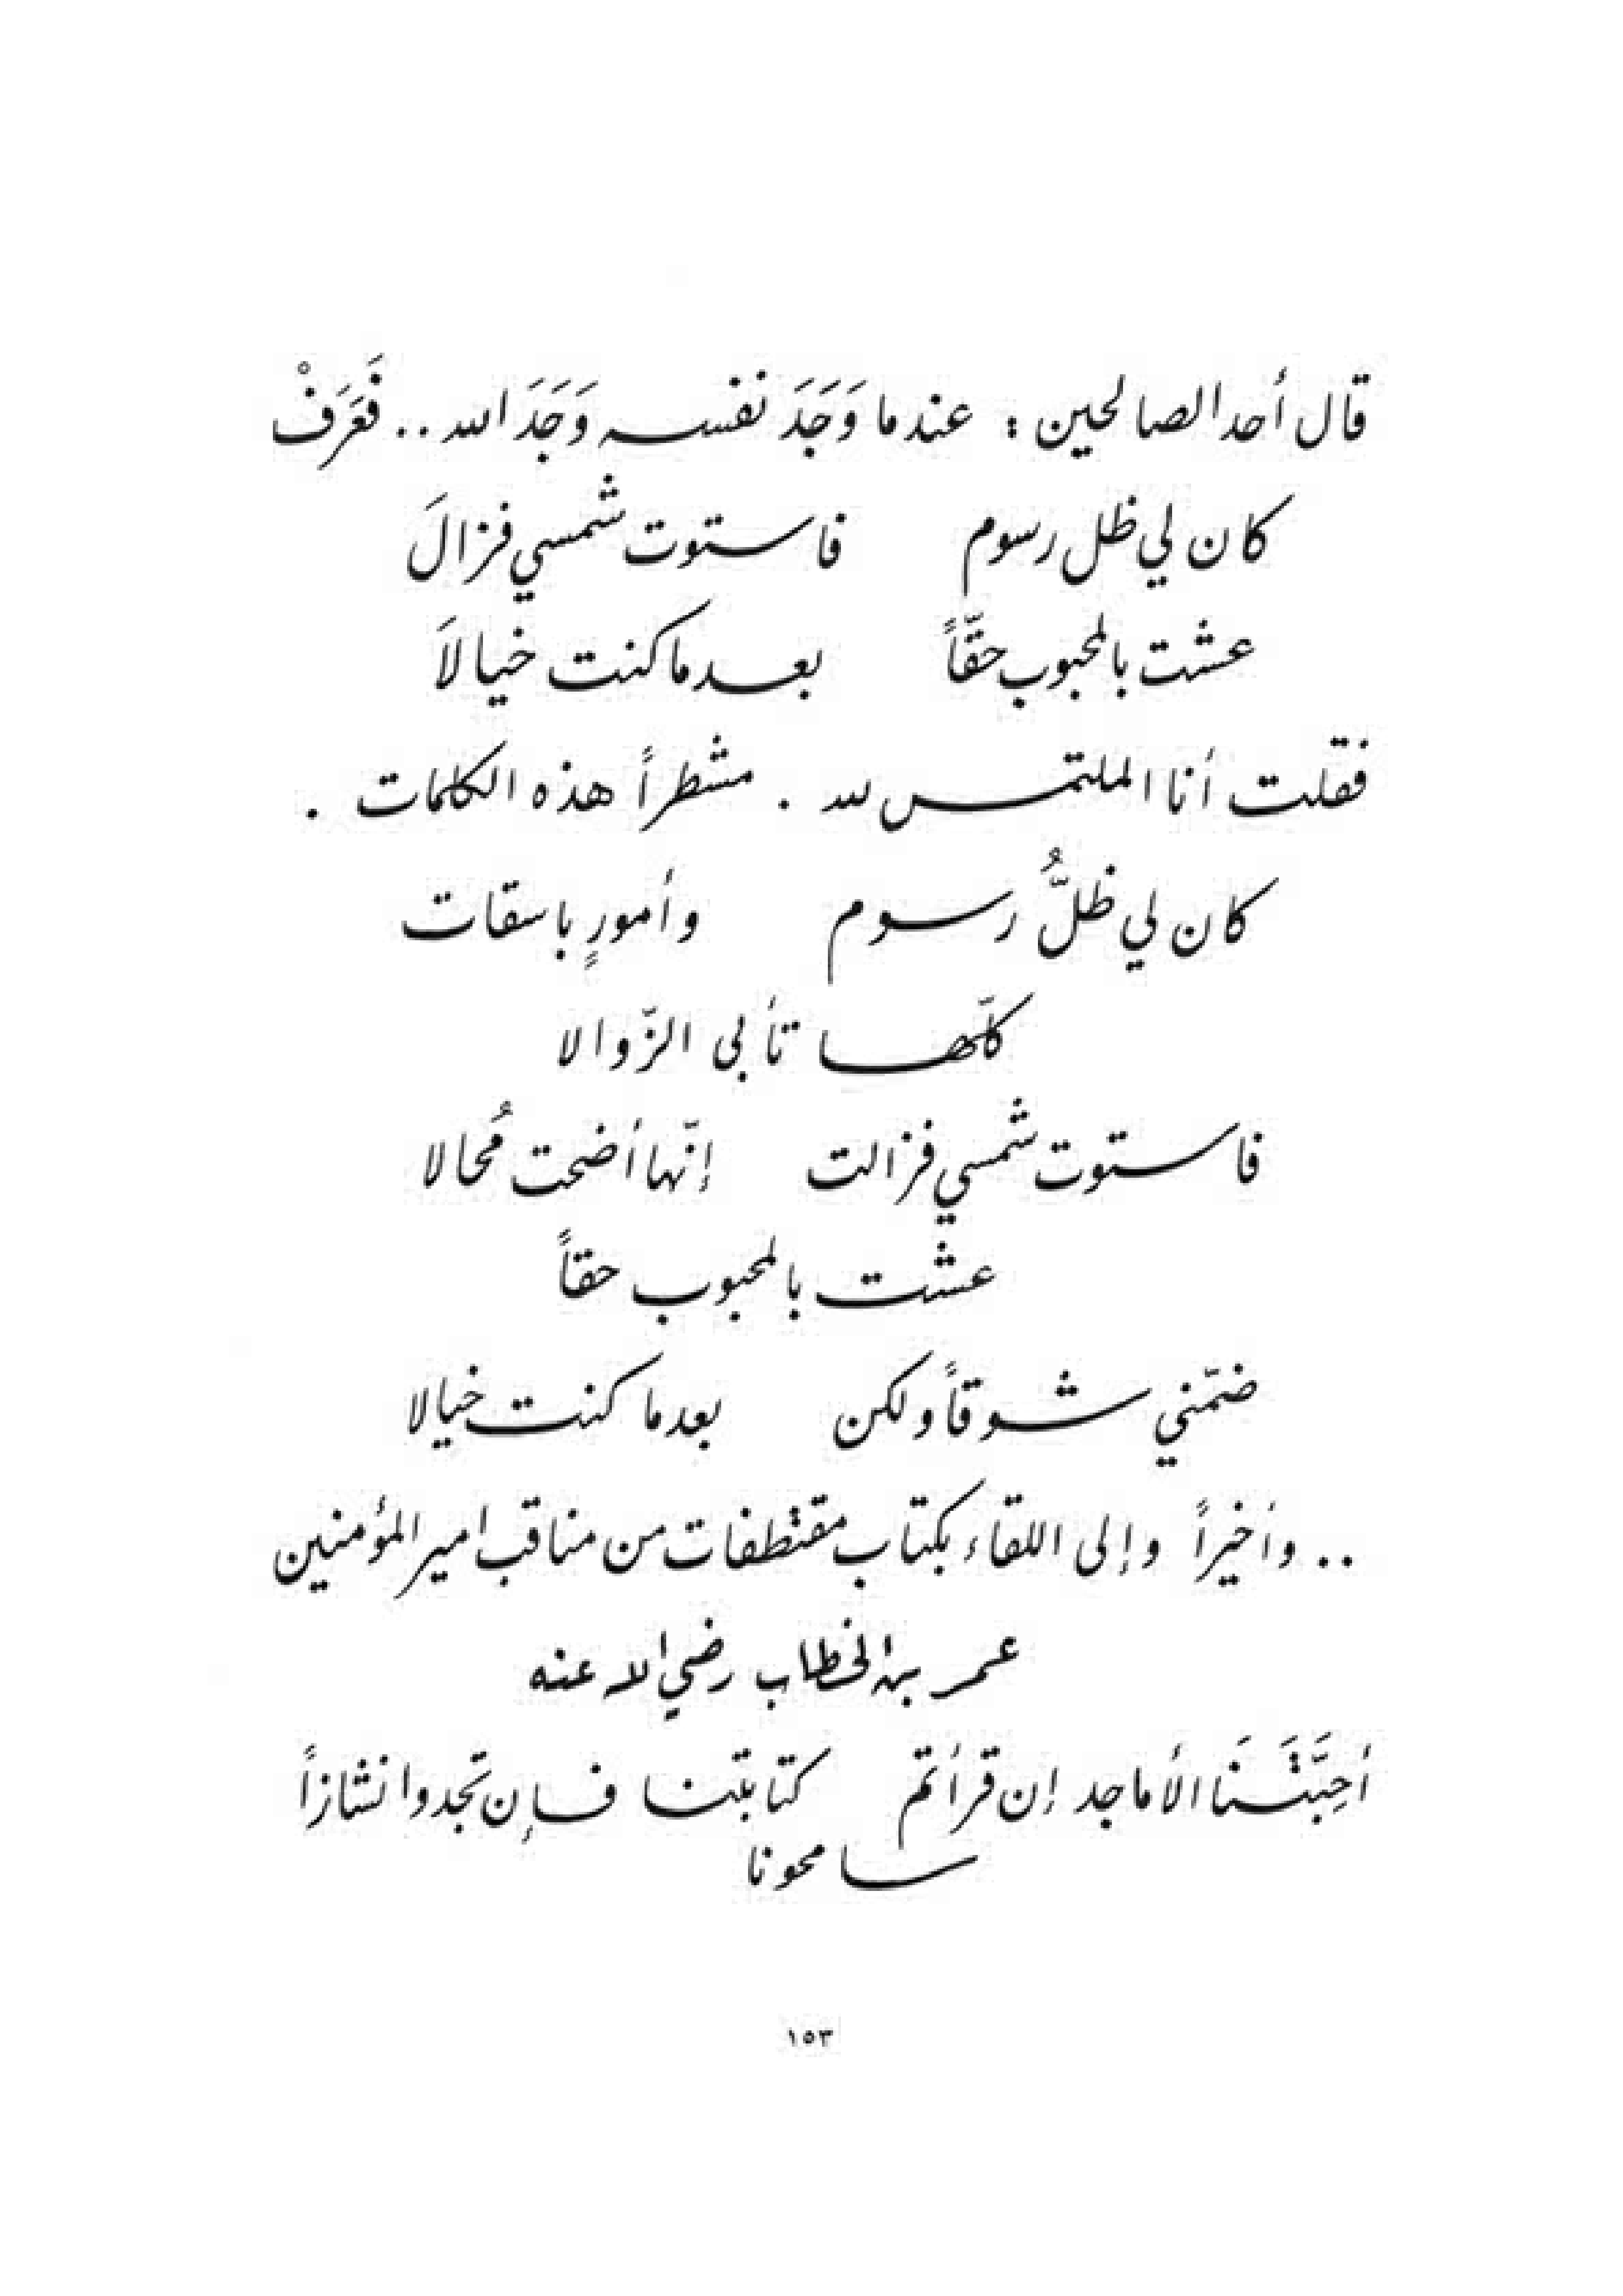 قال أحد الصالحين : عندما وَجَدَ نفسه وَجَدَ الله .. فَعَرَفْ
كان لي ظل رسوم فاستوت شمسي فزالَ
عشت بالمحبوب حقّاً بعد ما كنت خيالاَ
فقلت أنا الملتمس لله . مشطراً هذه الكلمات .
كان لي ظلُّ رسوم وأمورٍ باسقات
كلّها تأبى الزّوالا
فاستوت شمسي فزالت إنّها أضحت مُحالا
عشت بالمحبوب حقاً
ضمّني شوقاً ولكن بعدما كنت خيالا
.. وأخيراً وإلى اللقاء بكتاب مقتطفات من مناقب امير المؤمنين
عمر بن الخطاب رضي الله عنه
أحِبَّتَنَا الأماجد إن قرأتم كتابتنا فإن تجدوا نشازاً
سامحونا
١٥٣